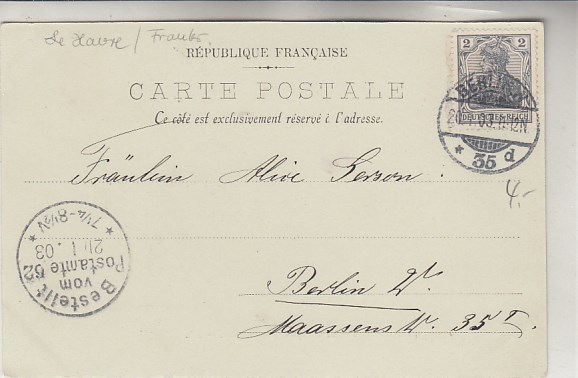 Le Havre / Frankr.
RÉPUBLIQUE FRANÇAISE
CARTE POSTALE
Ce côté est exclusivement réservé à l'adresse.
2
DEUTSCHES REICH
BERLIN W
03. 11-12N.
* 35 d
4.-
Fräulein Alice Gerson.
Berlin W.
Maassenstr. 35 I.
Bestellt
vom
Postamte 52
20/1.03
* 7¼-8½V *